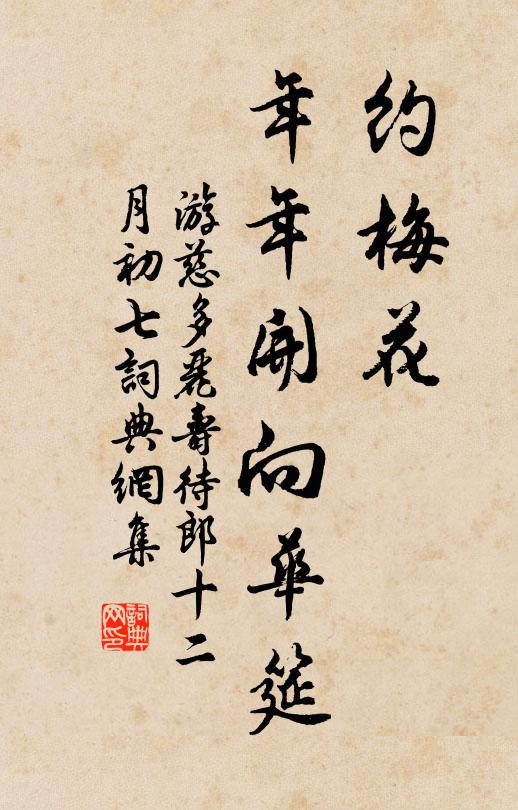 約梅花
年年開向華筵
游慈多麗壽待郎十二
月初七詞典網集
詞典
网印